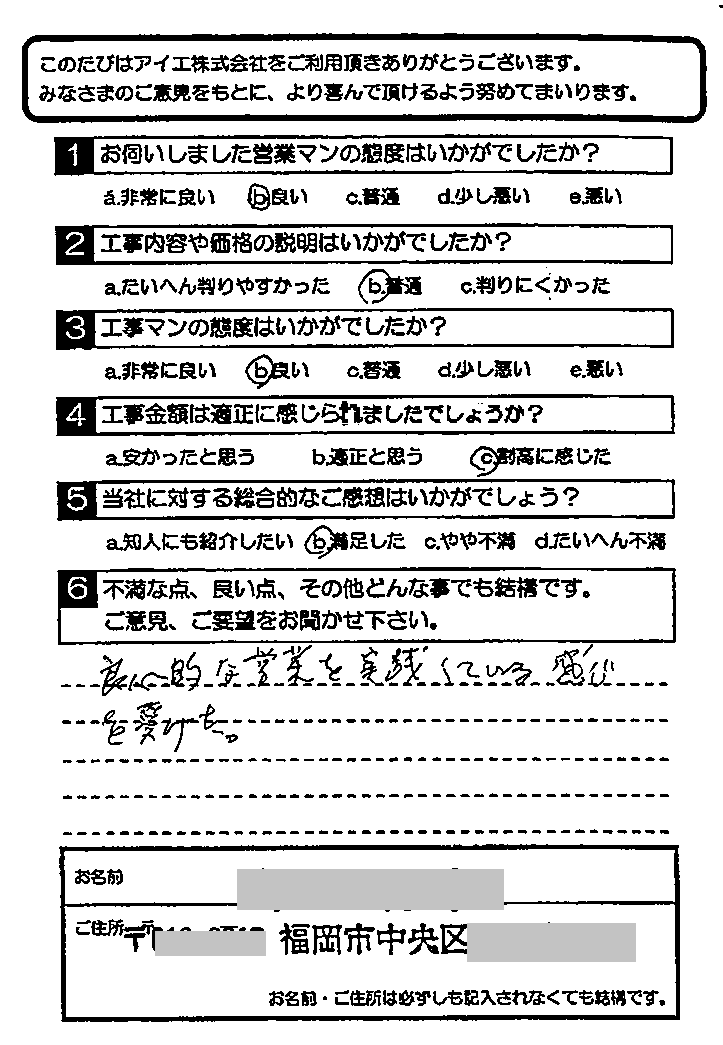 このたびはアイエ株式会社をご利用頂きありがとうございます。
みなさまのご意見をもとに、より喜んで頂けるよう努めてまいります。
1 お伺いしました営業マンの態度はいかがでしたか?
a.非常に良い b.良い c.普通 d.少し悪い e.悪い
2 工事内容や価格の説明はいかがでしたか?
a.たいへん判りやすかった b.普通 c.判りにくかった
3 工事マンの態度はいかがでしたか?
a.非常に良い b.良い c.普通 d.少し悪い e.悪い
4 工事金額は適正に感じられましたでしょうか?
a.安かったと思う b.適正と思う c.割高に感じた
5 当社に対する総合的なご感想はいかがでしょう?
a.知人にも紹介したい b.満足した c.やや不満 d.たいへん不満
6 不満な点、良い点、その他どんな事でも結構です。
ご意見、ご要望をお聞かせ下さい。
良心的な営業を実践している感じ
を受けた。
お名前
ご住所 〒 福岡市中央区
お名前・ご住所は必ずしも記入されなくても結構です。